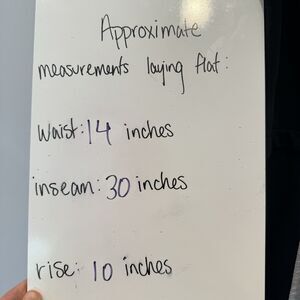 Approximate
measurements laying flat:
Waist: 14 inches
inseam: 30 inches
rise: 10 inches